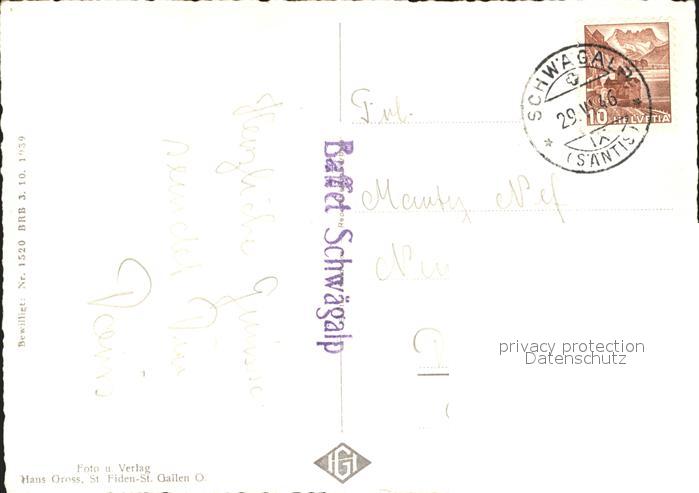 Bewilligt: Nr. 1520 BRB 3. 10. 1939
Herzliche Grüsse
sendet Dir
Buffet Schwägalp
SCHWÄGALP
29.VI.46
(SÄNTIS)
10 HELVETIA
Frl.
Nef
privacy protection
Datenschutz
HG
Foto u. Verlag
Hans Gross, St. Fiden-St. Gallen O.